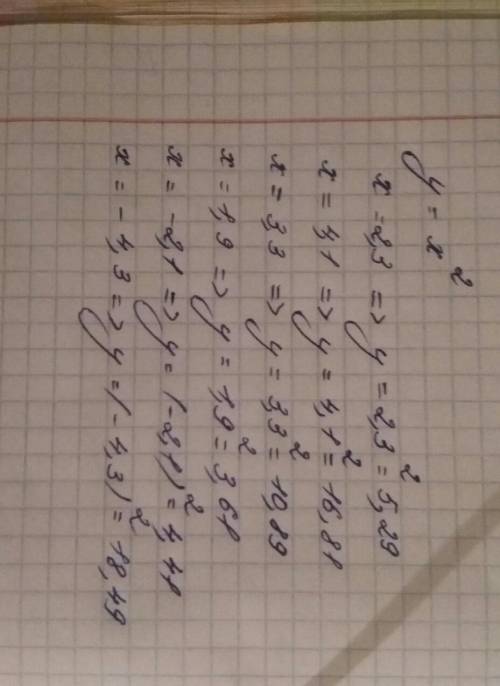 y = x²
x = 2,3 => y = 2,3² = 5,29
x = 4,1 => y = 4,1² = 16,81
x = 3,3 => y = 3,3² = 10,89
x = 1,9 => y = 1,9² = 3,61
x = -2,1 => y = (-2,1)² = 4,41
x = -4,3 => y = (-4,3)² = 18,49